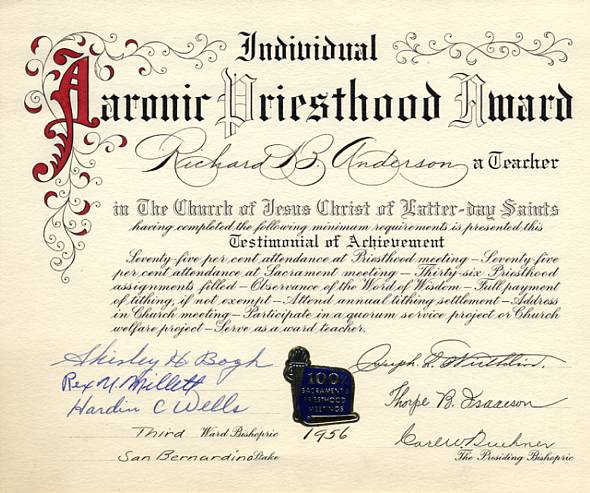 Individual
Aaronic Priesthood Award
Richard B. Anderson, a Teacher
in The Church of Jesus Christ of Latter-day Saints
having completed the following minimum requirements is presented this
Testimonial of Achievement
Seventy-five per cent attendance at Priesthood meeting – Seventy-five
per cent attendance at Sacrament meeting – Thirty-six Priesthood
assignments filled – Observance of the Word of Wisdom – Full payment
of tithing, if not exempt – Attend annual tithing settlement – Address
in Church meeting – Participate in a quorum service project or Church
welfare project – Serve as a ward teacher.
Shirley H. Bogh
Rex M. Millett
Hardin C Wells
Third Ward Bishopric
San Bernardino Stake
100%
SACRAMENT &
PRIESTHOOD
MEETINGS
1956
Joseph L. Wirthlin.
Thorpe B. Isaacson
Carl W. Buehner
The Presiding Bishopric